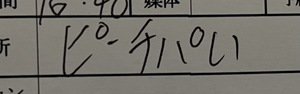 間 16:40 媒体
所 ピーチパい